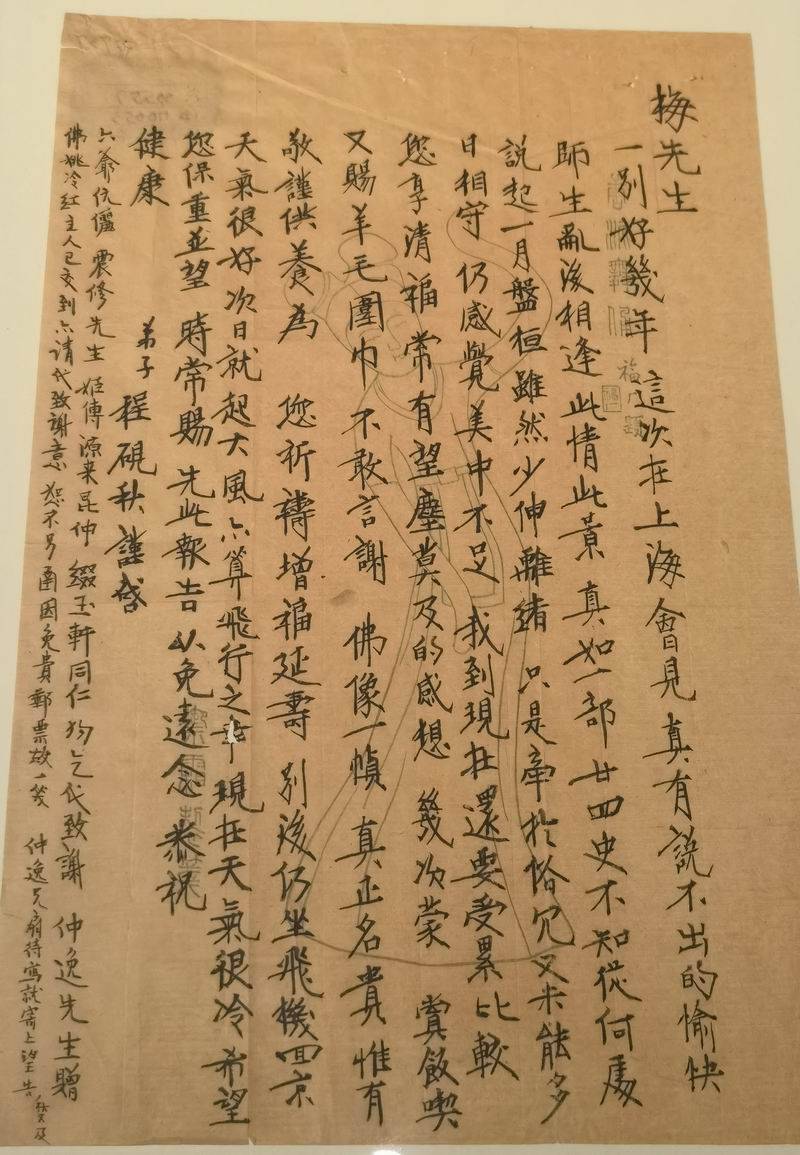 梅先生
一别好幾年 這次在上海會見 真有説不出的愉快
師生亂後相逢 此情此景 真如一部廿四史不知從何處
説起 一月盤桓 雖然少伸離緒 只是牽於俗冗 又未能多
日相守 仍感覺美中不足 我到現在還要受累 比較
您享清福 常有望塵莫及的感想 幾次蒙 賞飯喫
又賜羊毛圍巾 不敢言謝 佛像一幀 真正名貴 惟有
敬謹供養為 您祈禱增福延壽 别後仍坐飛機回京
天氣很好 次日就起大風 亦算飛行之幸 現在天氣很冷 希望
您保重並望 時常賜 先此報告以免遠念 恭祝
健康
弟子 程硯秋謹啓
六爺伉儷 震修先生 姬傳源来昆仲 綴玉軒同仁 均乞代致謝 仲逸先生贈
佛 姚冷紅主人已交到 亦請代致謝意 恕不另圅因免貴郵票故 一笑 仲逸兄扇待寫就寄上望告 秋又及